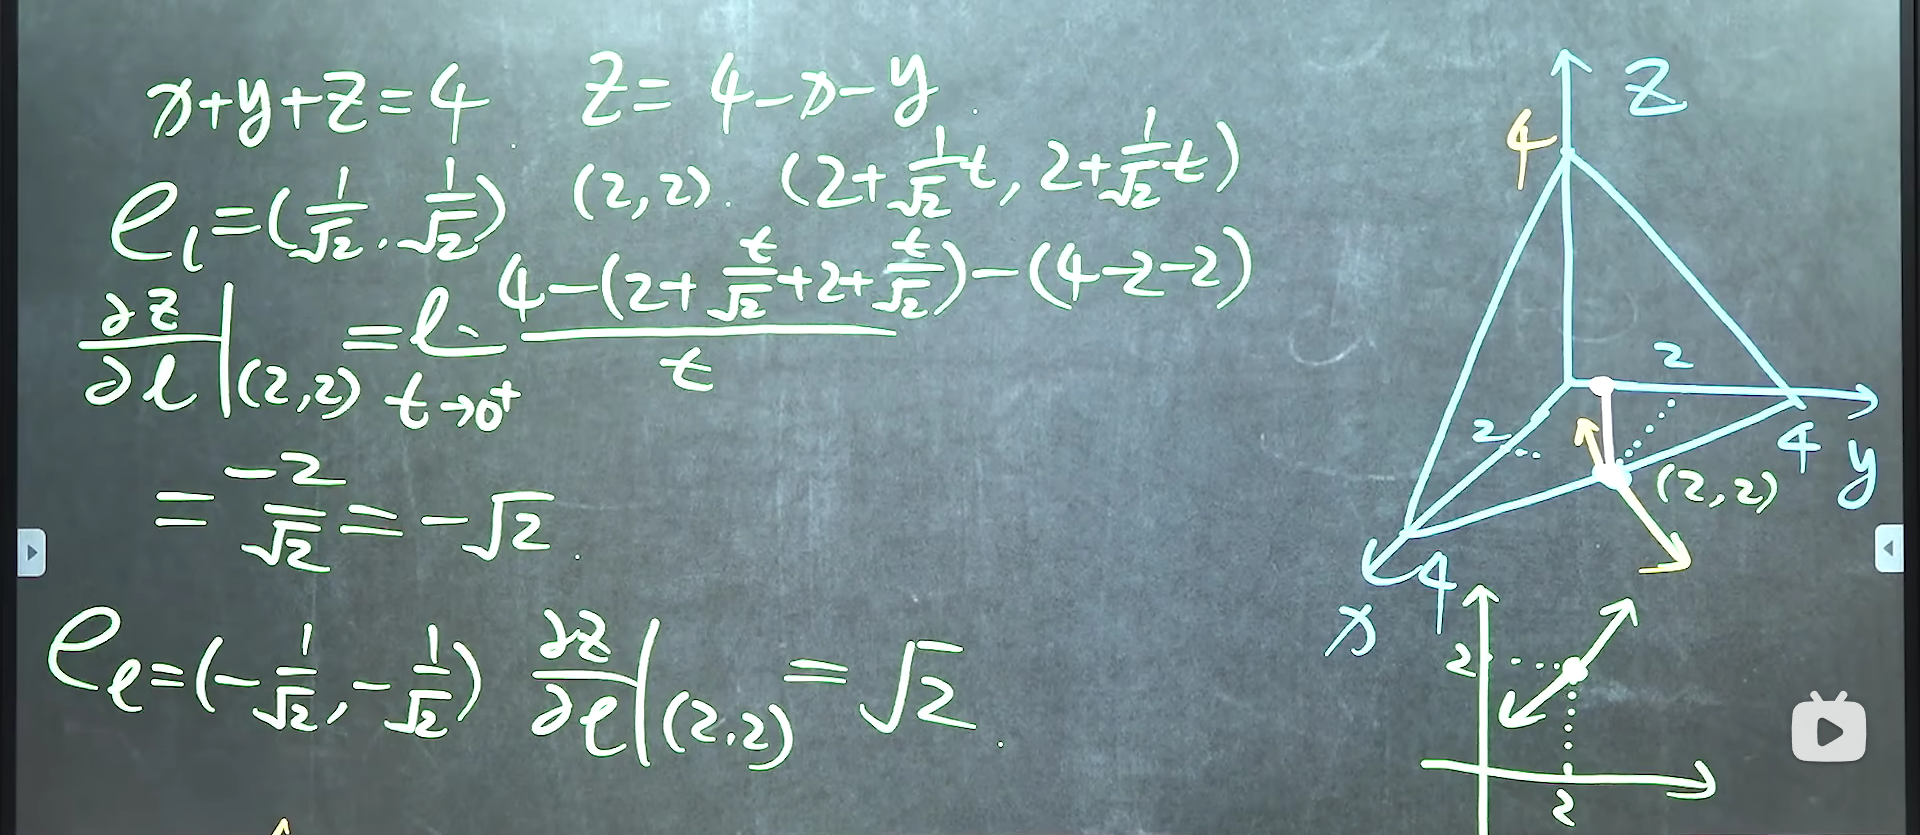 x+y+z=4   z=4-x-y
e_l=(1/√2, 1/√2)   (2,2).   (2+1/√2 t, 2+1/√2 t)
∂z/∂l |(2,2) = l t→0⁺ (4-(2+t/√2+2+t/√2)-(4-2-2))/t
= -2/√2 = -√2.
e_l=(-1/√2, -1/√2)   ∂z/∂l |(2,2) = √2.
z
4
2
2
4
y
(2,2)
4
x
2
2